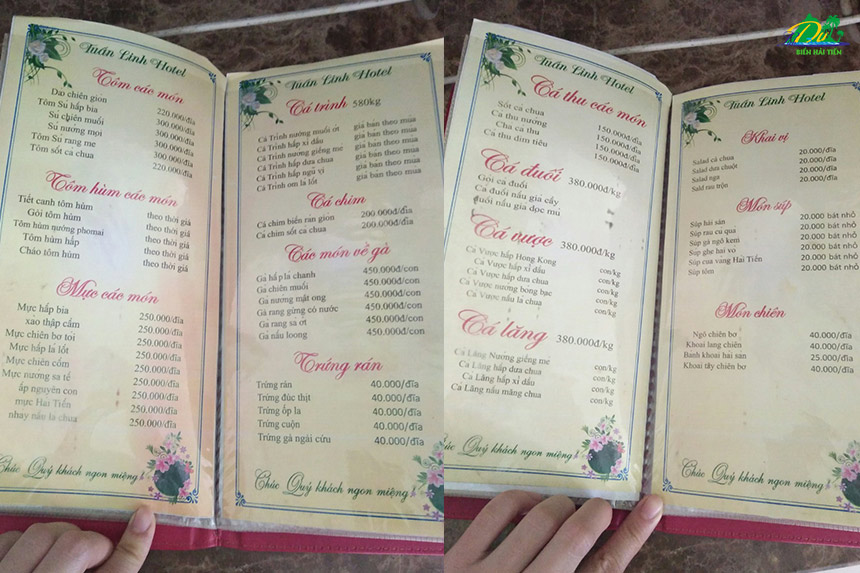 Tuấn Linh Hotel
Tôm các món
Dai chiên gion 220.000/đĩa
Tôm Su hấp bia 300.000/đĩa
Su chiên muối 300.000/đĩa
Su nướng mọi 300.000/đĩa
Tôm Su rang me 300.000/đĩa
Tôm sốt cà chua 220.000/đĩa
Tôm hùm các món
Tiết canh tôm hùm theo thời giá
Gỏi tôm hùm theo thời giá
Tôm hùm nướng phomai theo thời giá
Tôm hùm hấp theo thời giá
Cháo tôm hùm theo thời giá
Mực các món
Mực hấp bia 250.000/đĩa
xao thập cẩm 250.000/đĩa
Mực chiên bơ tỏi 250.000/đĩa
Mực hấp lá lốt 250.000/đĩa
Mực chiên cốm 250.000/đĩa
Mực nướng sa tế 250.000/đĩa
ấp nguyên con 250.000/đĩa
mực Hai Tiến 250.000/đĩa
nhay nấu la chua 250.000/đĩa
Chúc Quý khách ngon miệng!
Tuấn Linh Hotel
Cá trình 580kg
Cá Trình nướng muối ớt giá bán theo mùa
Cá Trình hấp xì dầu giá bán theo mùa
Cá Trình nướng giềng mẻ giá bán theo mùa
Cá Trình hấp dưa chua giá bán theo mùa
Cá Trình hấp ngũ vị giá bán theo mùa
Cá Trình om la lốt giá bán theo mùa
Cá chim
Cá chim biển rán gion 200.000/đĩa
Cá chim sốt ca chua 200.000/đĩa
Các món về gà
Gà hấp la chanh 450.000/con
Gà chiên muối 450.000/con
Gà nướng mật ong 450.000/con
Gà rang gừng có nước 450.000/con
Ga rang sa ớt 450.000/con
Gà nấu loong 450.000/con
Trứng rán
Trứng rán 40.000/đĩa
Trứng đúc thịt 40.000/đĩa
Trứng ốp la 40.000/đĩa
Trứng cuộn 40.000/đĩa
Trứng gà ngải cứu 40.000/đĩa
Chúc Quý khách ngon miệng!
Tuấn Linh Hotel
Cá thu các món
Sốt cá chua 150.000/đĩa
Cá thu nướng 150.000/đĩa
Cha ca thu 150.000/đĩa
Cá thu dim tiêu 150.000/đĩa
Cá đuối 380.000đ/kg
Gỏi cá đuối
Cá đuối nấu gia cầy
đuối nấu gia dọc mù
Cá vược 380.000đ/kg
Cá Vược hấp Hong Kong con/kg
Cá Vược hấp xì dầu con/kg
Cá Vược hấp dưa chua con/kg
Cá Vược nương bong bac con/kg
Cá Vược nấu la chua con/kg
Cá lăng 380.000đ/kg
Ca Lăng Nương giềng mẻ con/kg
Cá Lăng hấp dưa chua con/kg
Cá Lăng hấp xì dầu con/kg
Ca Lăng nấu măng chua con/kg
Chúc Quý khách ngon miệng!
Du
BIỂN HẢI TIẾN
Tuấn Linh Hotel
Khai vị
Salad cà chua 20.000/đĩa
Salad dưa chuột 20.000/đĩa
Salad nga 20.000/đĩa
Salad rau trộn 20.000/đĩa
Món súp
Súp hải sản 20.000 bát nhỏ
Súp rau cu qua 20.000 bát nhỏ
Súp gà ngô kem 20.000 bát nhỏ
Sup ghe hai vo 20.000 bát nhỏ
Súp cua vang Hai Tiến 20.000 bát nhỏ
Súp tôm 20.000 bát nhỏ
Món chiên
Ngô chiên bơ 40.000/đĩa
Khoai lang chiên 40.000/đĩa
Banh khoai hai san 25.000/đĩa
Khoai tây chiên bơ 40.000/đĩa
Chúc Quý khách ngon miệng!